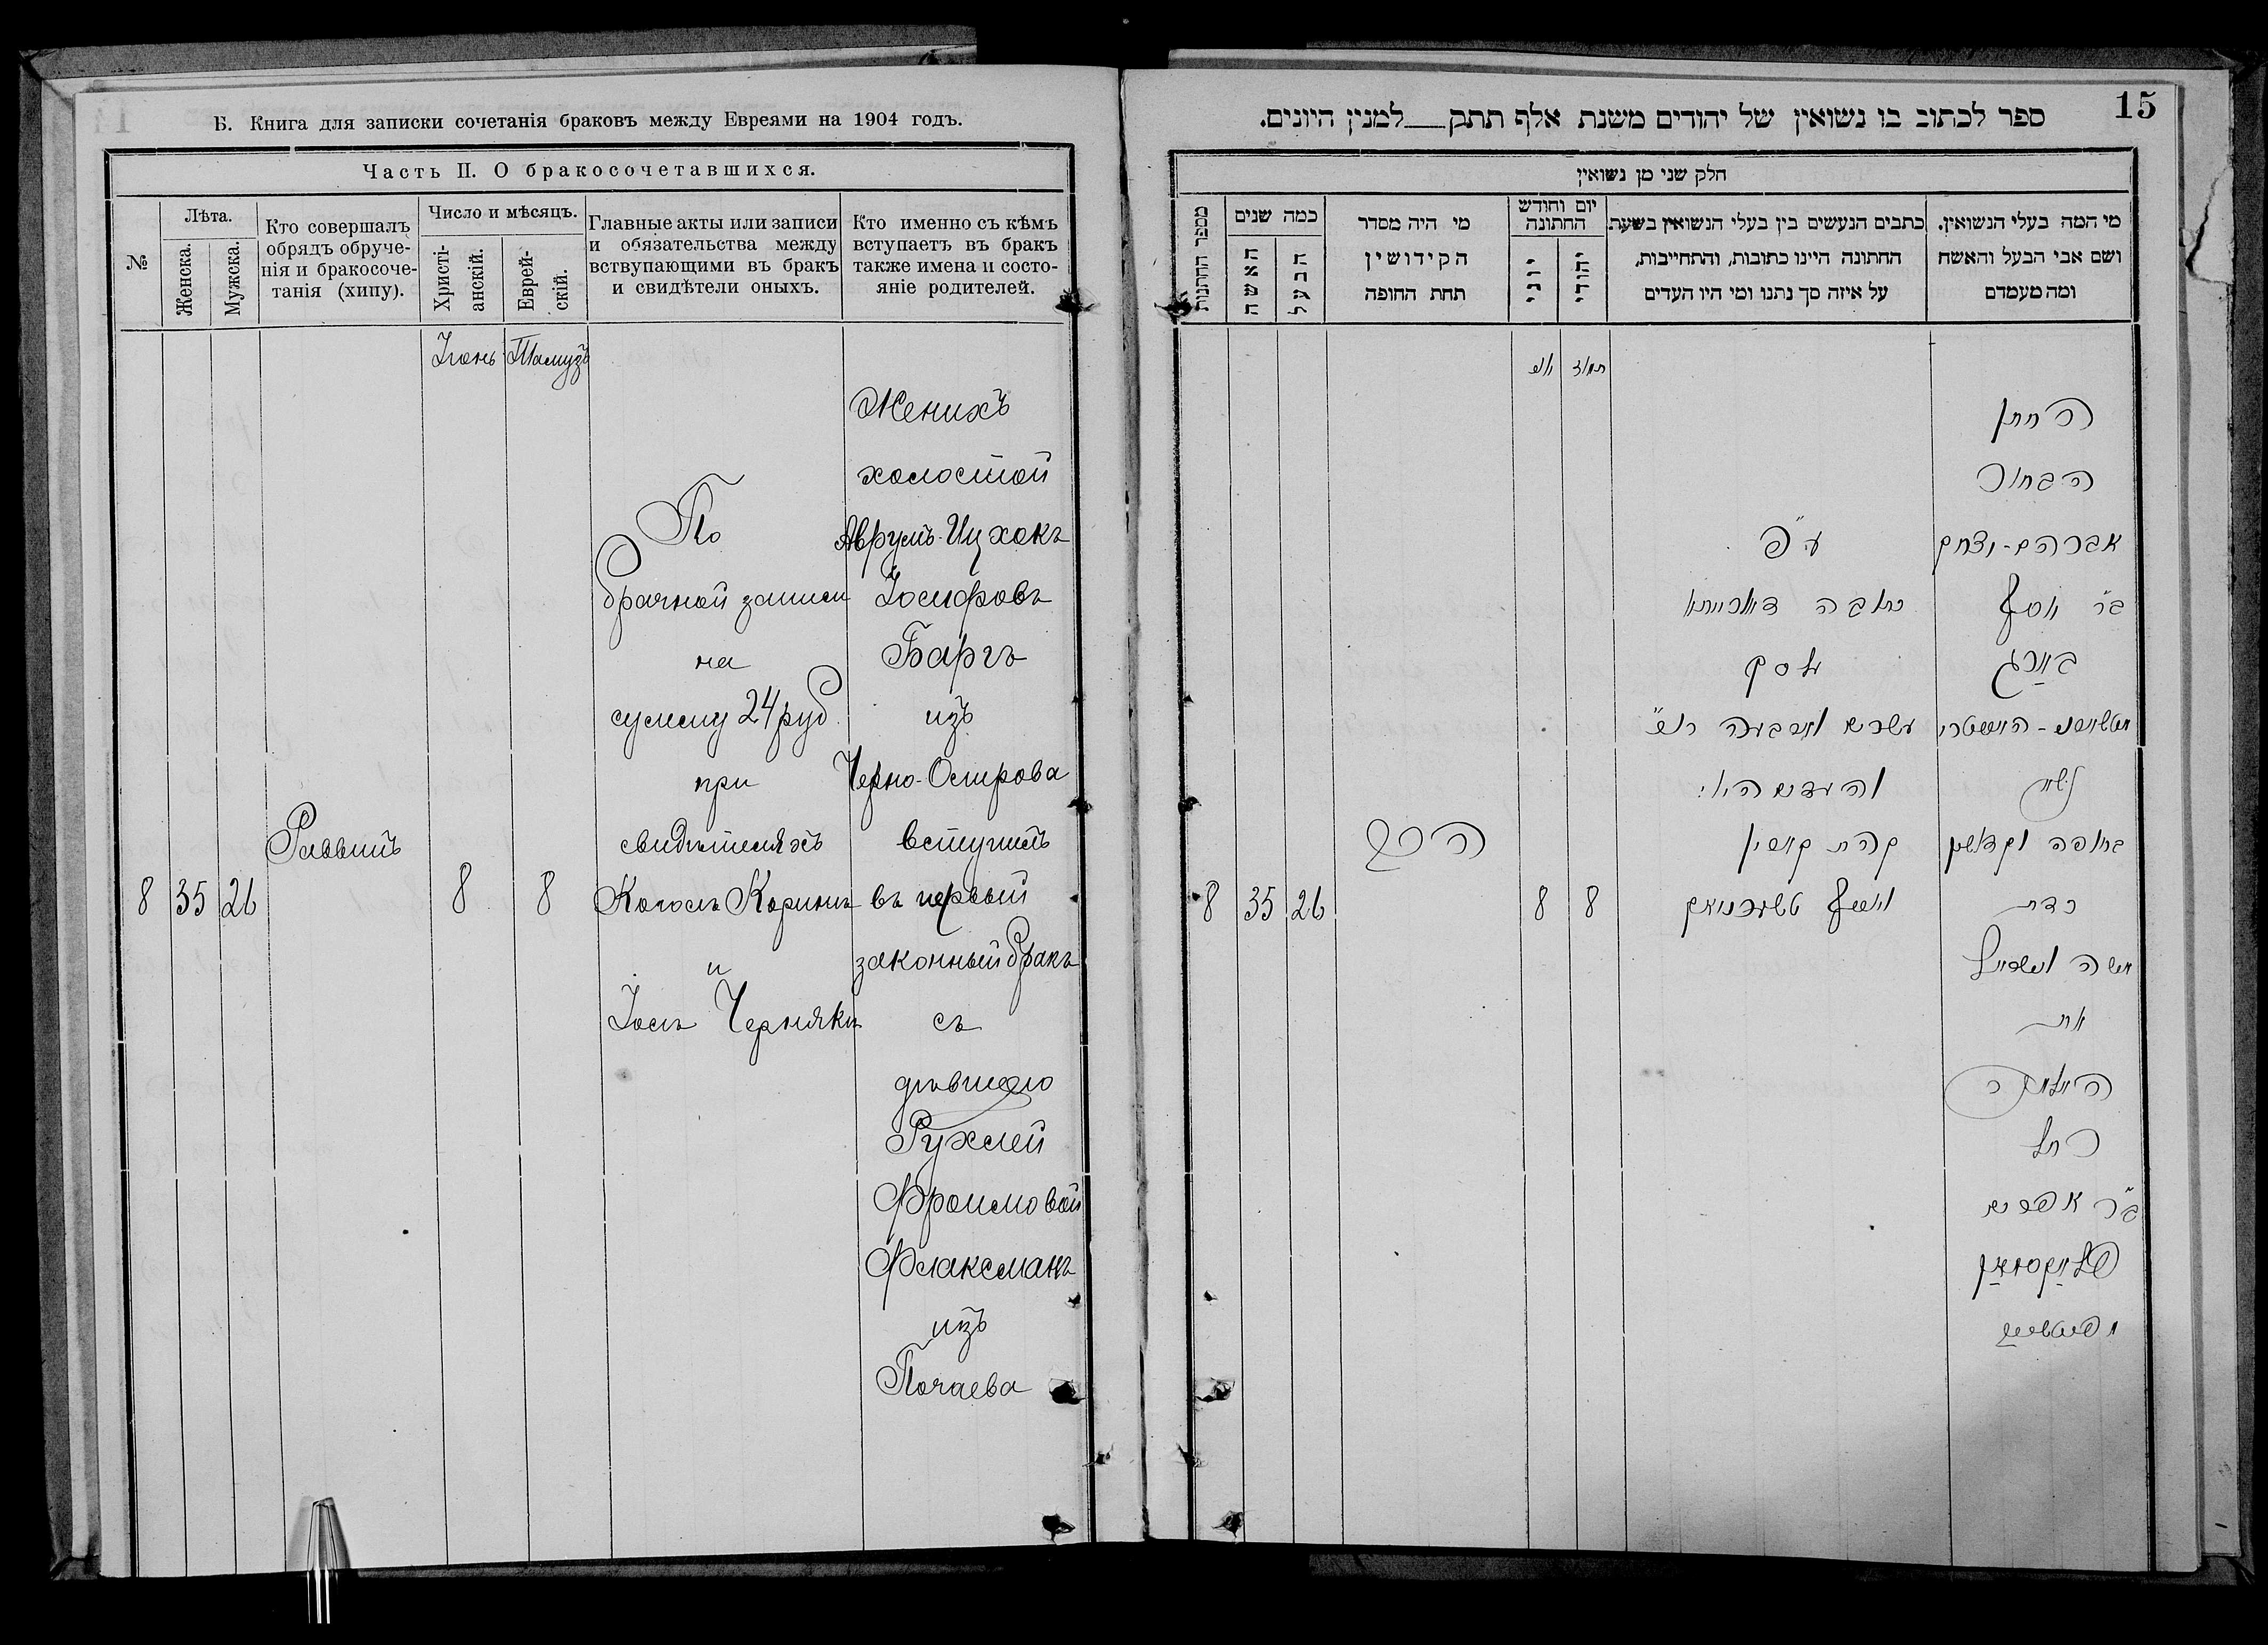 Б. Книга для записки сочетанія браковъ между Евреями на 1904 годъ.
Часть II. О бракосочетавшихся.
№
Лѣта.
Женска.
Мужска.
Кто совершалъ
обрядъ обруче-
нія и бракосоче-
танія (хипу).
Число и мѣсяцъ.
Христі-
анскій.
Еврей-
скій.
Главные акты или записи
и обязательства между
вствупающими въ бракъ
и свидѣтели оныхъ.
Кто именно съ кѣмъ
вступаетъ въ бракъ
также имена и состо-
яніе родителей.
Іюнь
Тамузъ
8
35
26
Раввинъ
8
8
По
брачной записи
на
сумму 24 руб.
при
свидѣтеляхъ
Кополь Коринъ
и
Іось Чернякъ
Женихъ
холостой
Аврумъ-Ицхокъ
Іосифовъ
Баргъ
изъ
Черно-Острова
вступилъ
въ первый
законный бракъ
съ
дѣвицею
Рухлей
Фроимовой
Флаксманъ
изъ
Почаева
15
ספר לכתוב בו נשואין של יהודים משנת אלף תתק למנין היונים.
חלק שני מן נשואין
מספר החתנות
כמה שנים
האשה
הבעל
מי היה מסדר
הקידושין
תחת החופה
יום וחודש
החתונה
יוני
יהודי
כתבים הנעשים בין בעלי הנשואין בשעת
החתונה היינו כתובות, והתחייבות,
על איזה סך נתנו ומי היו העדים
מי המה בעלי הנשואין.
ושם אבי הבעל והאשה
ומה מעמדם
יוני
תמוז
8
35
26
הרב
8
8
ע״פ
כתובה דאורייתא
על סך
עשרים וארבעה רו״כ
והעדים היו
החתן
הבחור
אברהם-יצחק
ב״ר יוסף
בארג
נשא
בחופה וקדושין
כדת
משה וישראל
את
הבתולה
רחל
ב״ר אפרים
פלאקסמאן